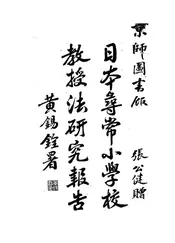 京師圖書館
張公健贈
日本尋常小學校
教授法研究報告
黃錫銓署